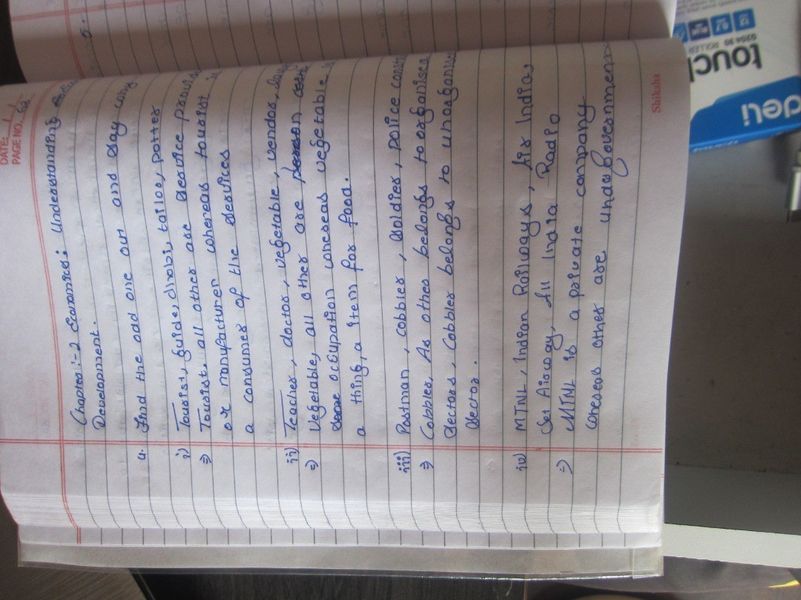 DATE: / /
PAGE NO.:
Chapter :- 2 Economics: Understanding
Development.
4. Find the odd one out and say why
i) Tourist, guide, dhobi, tailor, potter
⇒ Tourist. all other are service provider
or manufacturer whereas tourist is
a consumer of the services
ii) Teacher, doctor, vegetable, vendor,
⇒ Vegetable, all other are
occupation whereas vegetable is
a thing, a item for food.
iii) Postman, cobbler, soldier, police const
⇒ Cobbler, As other belongs to organised
sectors, Cobbler belongs to unorganis
sector.
iv) MTNL, Indian Railways, Air India,
Jet Airway, All India Radio
⇒ MTNL is a private company
whereas other are under Government
Shiksha
touch
ROLLER
deli